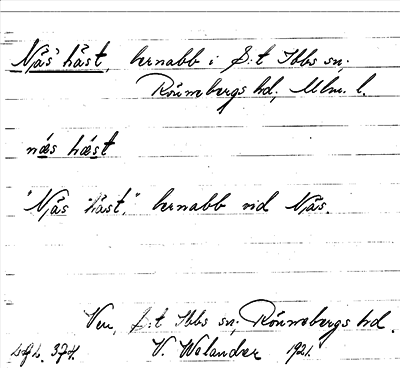 Njäs häst, bernabb i S:t Ibbs sn.
Rönnebergs hd, Mlm. l.
næs hæst
"Njäs häst," bernabb vid Njäs.
Ven, S:t Ibbs sn, Rönnebergs hd.
V. Wolander 1921.